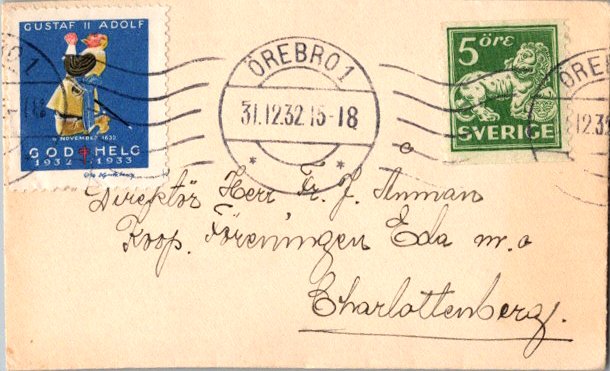 GUSTAF II ADOLF
6 NOVEMBER 1632
GOD HELG
1932 1933
ÖREBRO 1
31.12.32.15-18
5 öre
SVERIGE
ÖRE
12.3
Direktör Herr Fr. J. Anman
Koop. Föreningen Eda m.o
Charlottenberg.